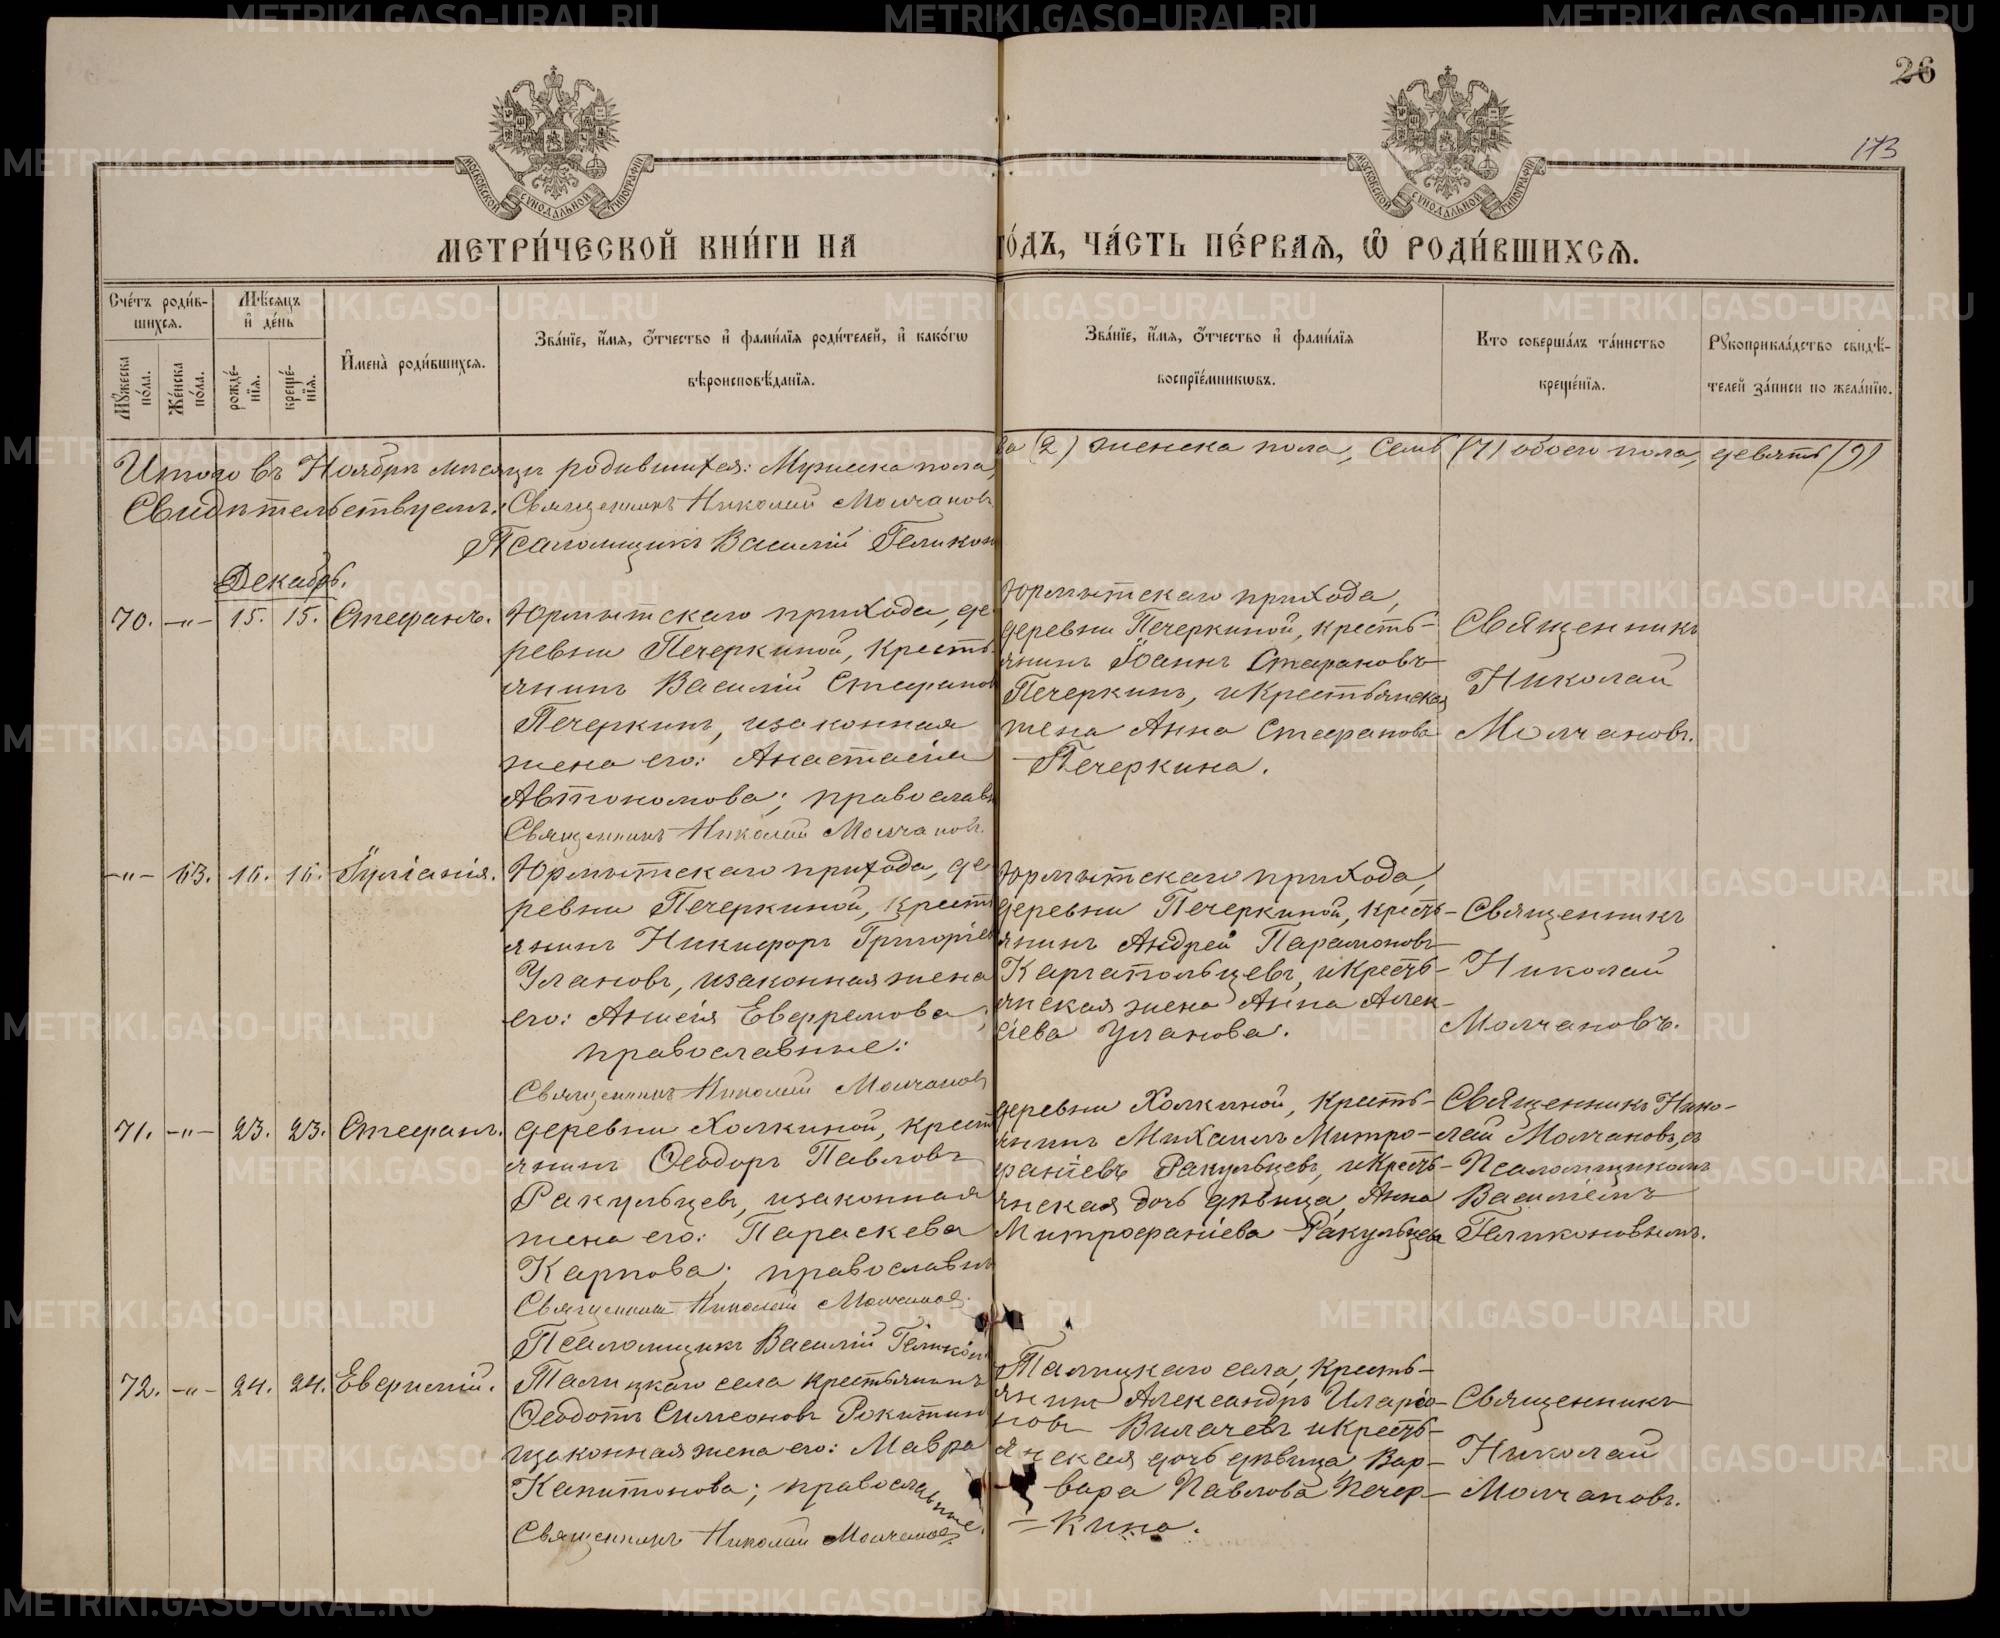 26
173
МОСКОВСКОЙ СУНОДАЛЬНОЙ ТИПОГРАФІИ
МОСКОВСКОЙ СУНОДАЛЬНОЙ ТИПОГРАФІИ
МЕТРИ́ЧЕСКОЙ КНИ́ГИ НА ГО́ДЪ, ЧА́СТЬ ПЕ́РВАЯ, Ѡ РОДИ́ВШИХСЯ.
Сче́тъ роди́в-
шихся.
Му́жеска по́ла.
Же́нска по́ла.
Мѣ́сяцъ
и де́нь
рожде́-
нїя.
креще́-
нїя.
Имена̀ роди́вшихся.
Зва́нїе, и́мя, о́тчество и фами́лїя роди́телей, и како́гѡ
вѣроисповѣ́данїя.
Зва́нїе, и́мя, о́тчество и фами́лїя
воспрїе́мникѡвъ.
Кто соверша́лъ та́инство
креще́нїя.
Рукоприкла́дство свидѣ́-
телей за́писи по жела́нїю.
Итого въ Ноябрѣ мѣсяцѣ родившихся: Мужеска пола,
ва (2) женска пола, семь (7) обоего пола, девять (9)
Свидѣтельствуемъ: Священникъ Николай Молчановъ
Псаломщикъ Василій Геликон
Декабрь.
70. -"- 15. 15. Стефанъ.
Юрмытскаго прихода, де-
ревни Печеркиной, кресть-
янинъ Василій Стефанов
Печеркинъ, и законная
жена его: Анастасія
Автономова; православн
Священникъ Николай Молчановъ.
Юрмытскаго прихода,
деревни Печеркиной, кресть-
янинъ Іоаннъ Стефановъ
Печеркинъ, и крестьянская
жена Анна Стефанова
Печеркина.
Священникъ
Николай
Молчановъ.
-"- 63. 16. 16. Іуліанія.
Юрмытскаго прихода, де
ревни Печеркиной, крест
янинъ Никифоръ Григорьев
Улановъ, и законная жена
его: Анисія Евфремова;
православные:
Священникъ Николай Молчановъ
Юрмытскаго прихода,
деревни Печеркиной, кресть-
янинъ Андрей Парамоновъ
Каргапольцевъ, и кресть-
янская жена Анна Алек-
сіева Уланова.
Священникъ
Николай
Молчановъ.
71. -"- 23. 23. Стефанъ.
деревни Холкиной, крест
янинъ Ѳеодоръ Павловъ
Ракульцевъ, и законная
жена его: Параскева
Карпова; православн
Священникъ Николай Молчановъ.
Псаломщикъ Василій Геликон
деревни Холкиной, кресть-
янинъ Михаилъ Митро-
фаніевъ Ракульцевъ, и кресть-
янская дочь дѣвица, Анна
Митрофаніева Ракульцева
Священникъ Нико-
лай Молчановъ, съ
Псаломщикомъ
Василіемъ
Геликоновымъ.
72. -"- 24. 24. Евгеній.
Талицкаго села крестьянинъ
Ѳеодотъ Симеоновъ Рокитин
и законная жена его: Мавра
Капитонова; православные.
Священникъ Николай Молчановъ
Талицкаго села, кресть-
янинъ Александръ Иларіо-
новъ Вилачевъ и кресть-
янская дочь дѣвица Вар-
вара Павлова Печер-
кина.
Священникъ
Николай
Молчановъ.